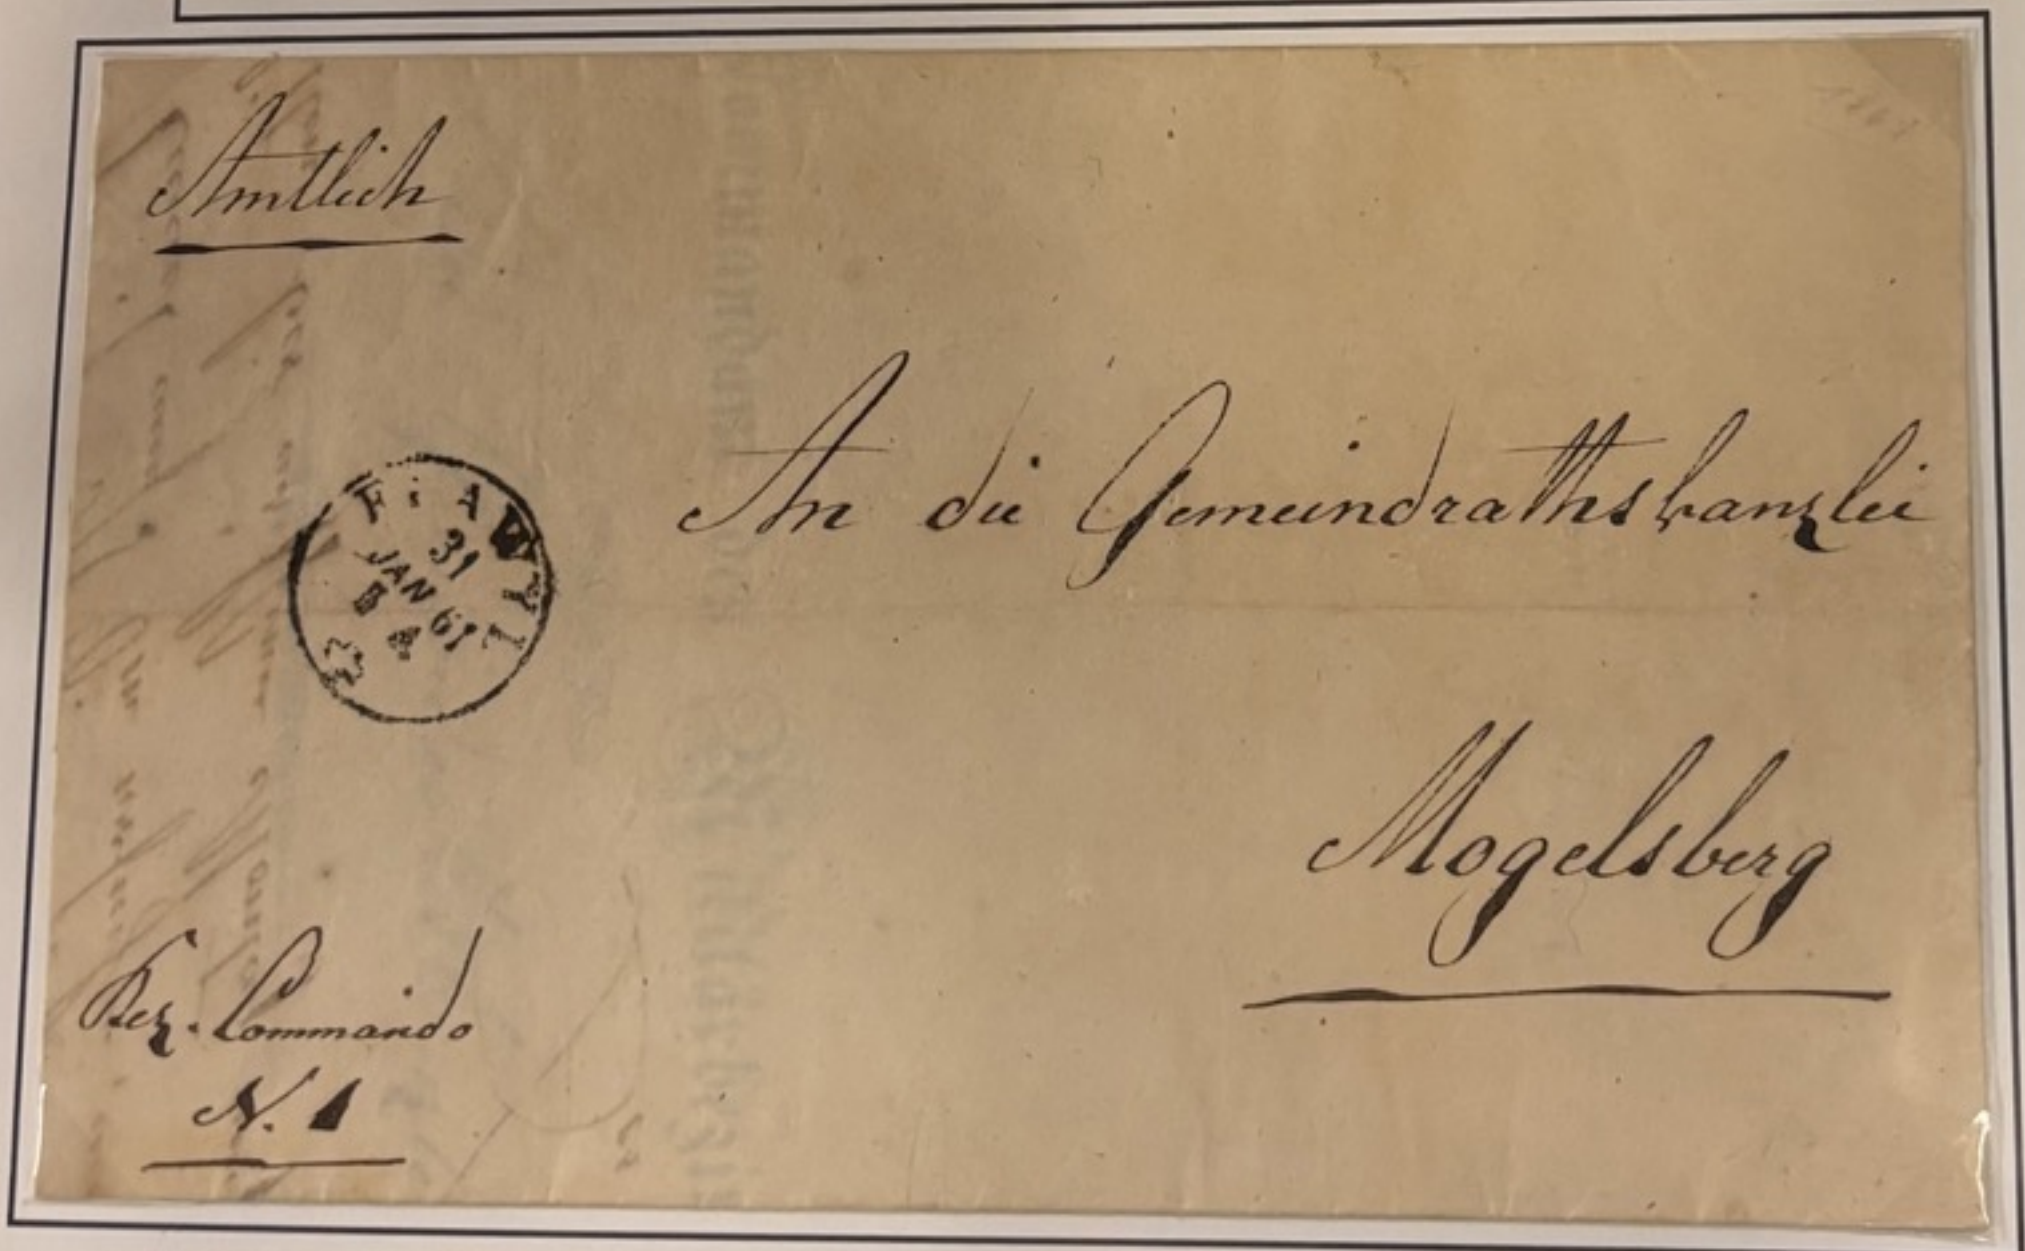 Amtlich
FLAWYL
31
JAN 61
4
An die Gemeindrathskanzlei
Mogelsberg
Bez. Commando
N. 1